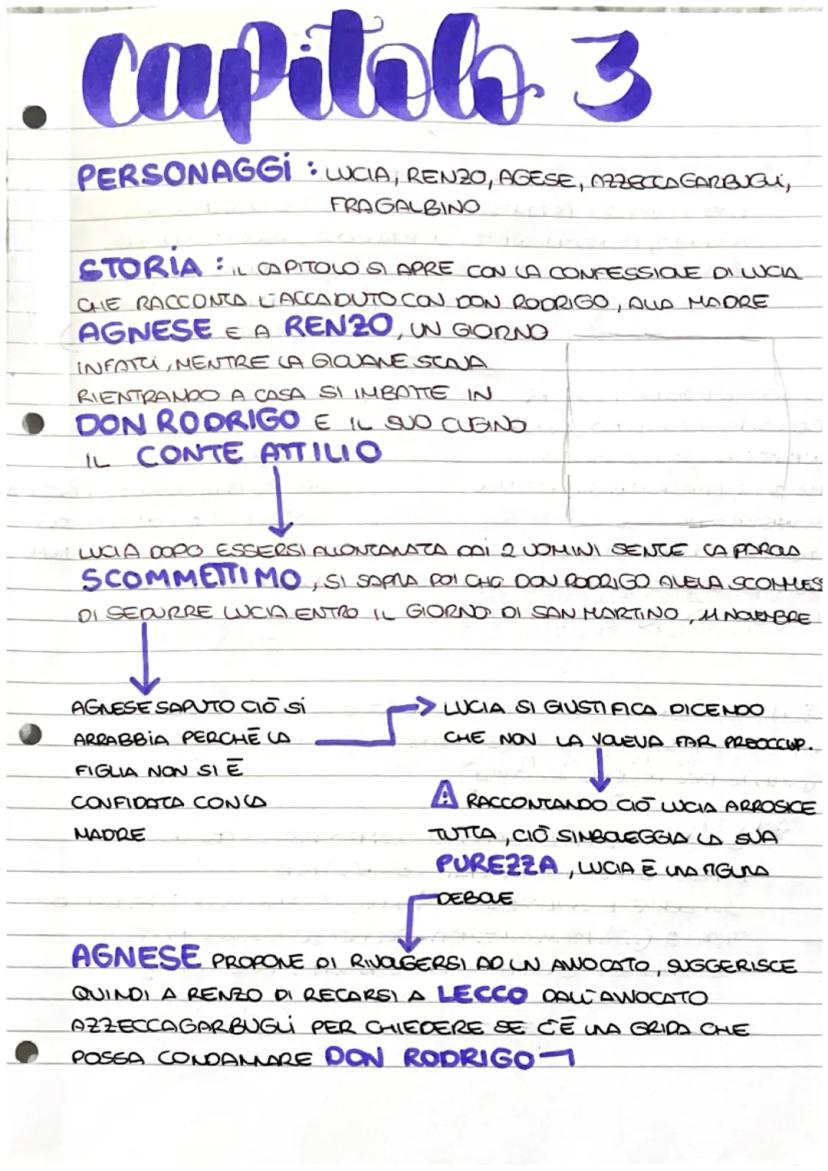 Capitolo 3
PERSONAGGI : LUCIA, RENZO, AGESE, AZZECCAGARBUGLI,
FRAGALBINO
STORIA : IL CAPITOLO SI APRE CON LA CONFESSIONE DI LUCIA
CHE RACCONTA L'ACCADUTO CON DON RODRIGO, ALLA MADRE
AGNESE E A RENZO, UN GIORNO
INFATTI, MENTRE LA GIOVANE STAVA
RIENTRANDO A CASA SI IMBATTE IN
DON RODRIGO E IL SUO CUGINO
IL CONTE ATTILIO
LUCIA DOPO ESSERSI ALLONTANATA DAI 2 UOMINI SENTE LA PAROLA
SCOMMETTIMO, SI SAPRA POI CHE DON RODRIGO AVEVA SCOMMES
DI SEDURRE LUCIA ENTRO IL GIORNO DI SAN MARTINO, 11 NOVEMBRE
AGNESE SAPUTO CIÒ SI
ARRABBIA PERCHÈ LA
FIGLIA NON SI È
CONFIDATA CON LA
MADRE
LUCIA SI GIUSTIFICA DICENDO
CHE NON LA VOLEVA FAR PREOCCUP.
A RACCONTANDO CIÒ LUCIA ARROSICE
TUTTA, CIÒ SIMBOLEGGIA LA SUA
PUREZZA, LUCIA È UNA FIGURA
DEBOLE
AGNESE PROPONE DI RIVOLGERSI AD UN AVVOCATO, SUGGERISCE
QUINDI A RENZO DI RECARSI A LECCO DALL'AVVOCATO
AZZECCAGARBUGLI PER CHIEDERE SE C'È UNA GRIDA CHE
POSSA CONDANNARE DON RODRIGO